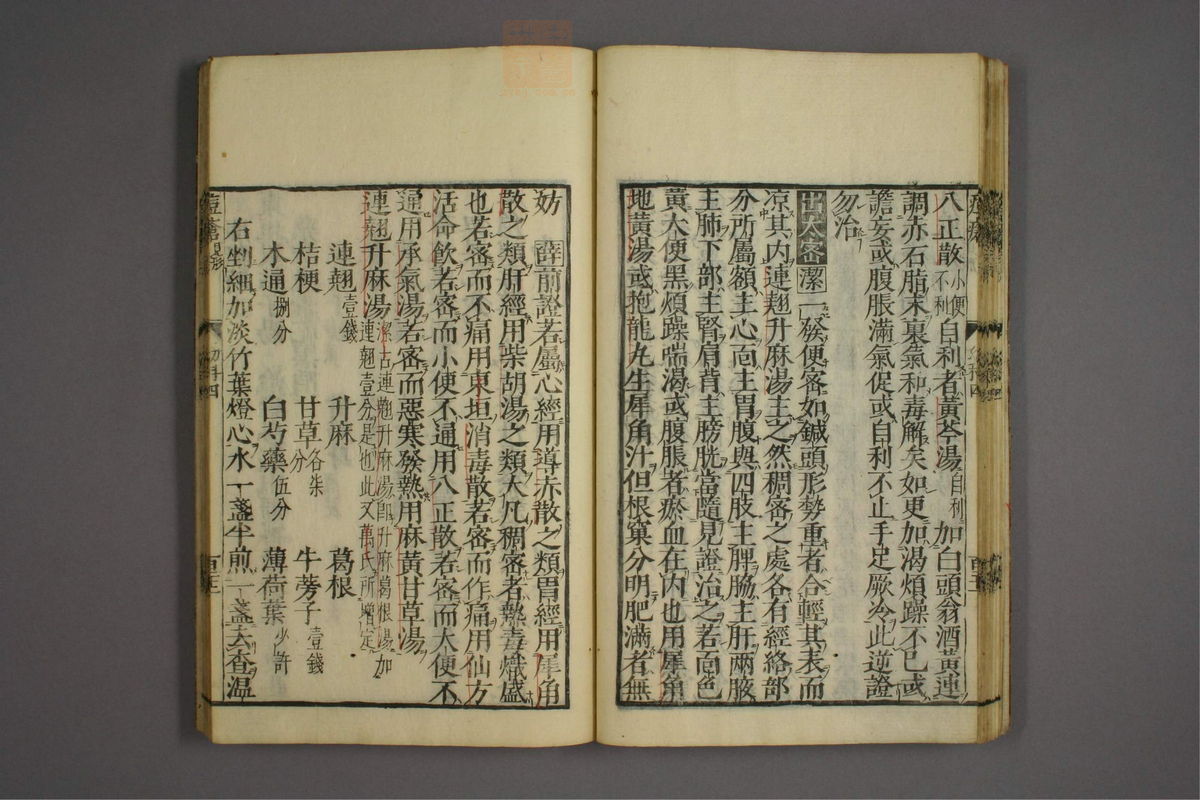 八正散小便不利自利者黃芩湯自利加白頭翁酒黃連
調赤石脂末裏氣和毒解矣如更加渴煩躁不已或
譫妄或腹脹滿氣促或自利不止手足厥冷此逆證
勿治
出太密 潔 一發便密如鍼頭形勢重者合輕其表而
凉其内連翹升麻湯主之然稠密之處各有經絡部
分所屬額主心面主胃腹與四肢主脾脇主肝兩腋
主肺下部主腎肩背主膀胱當隨見證治之若面色
黃大便黑煩躁喘渴或腹脹者瘀血在内也用犀角
地黃湯或抱龍丸生犀角汁但根窠分明肥滿者無
妨 薛 前證若屬心經用導赤散之類胃經用犀角
散之類肝經用柴胡湯之類大凡稠密者熱毒熾盛
也若密而不痛用東垣消毒散若密而作痛用仙方
活命飲若密而小便不通用八正散若密而大便不
通用承氣湯若密而惡寒發熱用麻黃甘草湯
連翹升麻湯潔古連翹升麻湯即升麻葛根湯加連翹壹分是也此又萬氏所增定
連翹壹錢 升麻 葛根
桔梗 甘草各柒分 牛蒡子壹錢
木通捌分 白芍藥伍分 薄荷葉少許
右剉細加淡竹葉燈心水一盞半煎一盞去查温
痘瘡 見形
幼科四